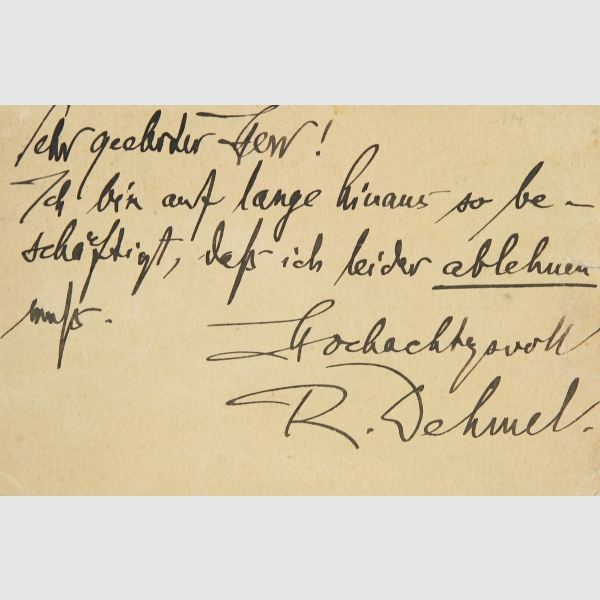 Sehr geehrter Herr!
Ich bin auf lange hinaus so be-
schäftigt, daß ich leider ablehnen
muß.
Hochachtgsvoll
R. Dehmel.